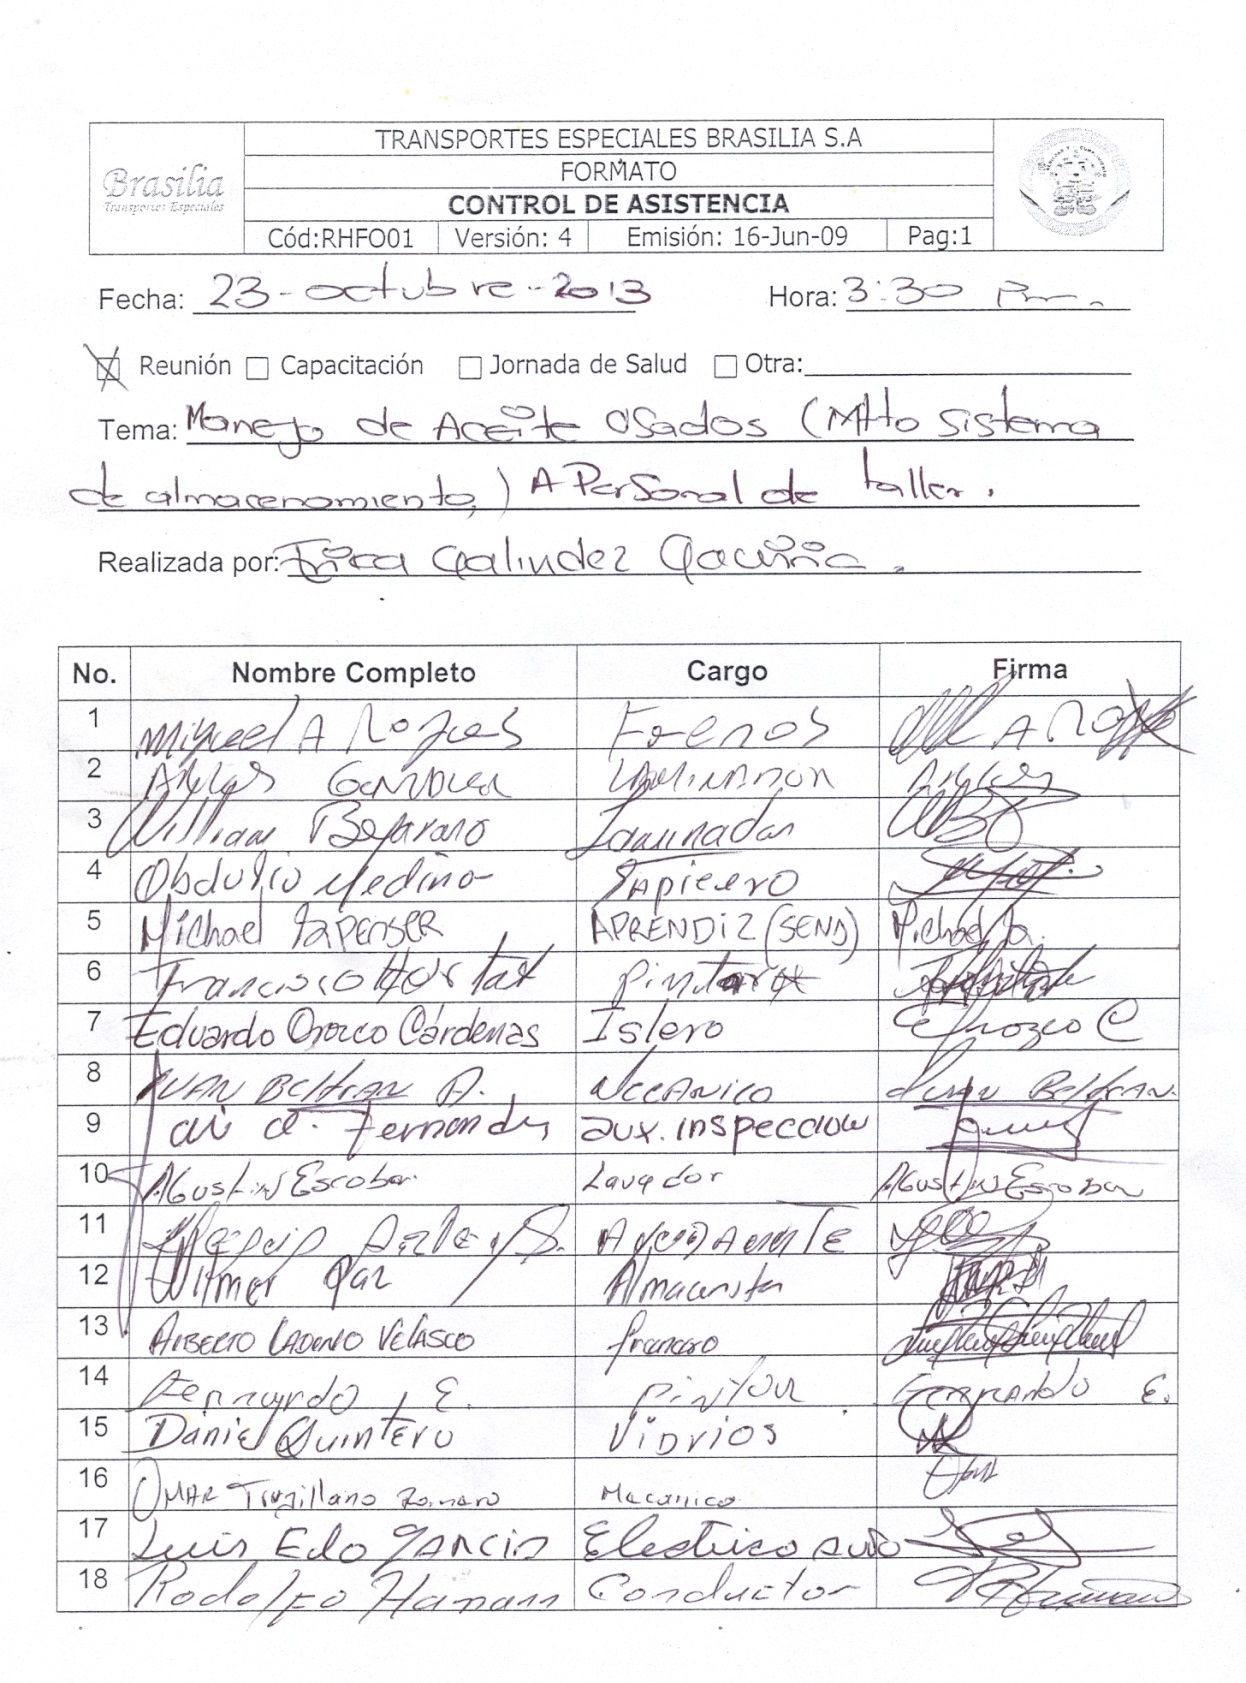 Brasilia
Transportes Especiales
TRANSPORTES ESPECIALES BRASILIA S.A
FORMATO
CONTROL DE ASISTENCIA
Cód:RHFO01 Versión: 4 Emisión: 16-Jun-09 Pag:1
Fecha: 23-octubre-2013 Hora: 3:30 Pm.
Reunión Capacitación Jornada de Salud Otra:
Tema: Manejo de Aceite Usados (Mtto sistema
de almacenamiento,) A Personal de taller.
Realizada por: Erica Galindez
No. Nombre Completo Cargo Firma
1 Miguel A Frenos
2 Gonzalez
3 William Laminador
4 Obdulio Medina Tapicero
5 Michael APRENDIZ (SENA) Michael
6 Francisco Pintura
7 Eduardo Orozco Cárdenas Islero EOrozco C
8 IVAN BELTRAN A. Mecanico Ivan BELTRAN.
9 Fernandez aux. inspeccion
10 Agustin Escobar Lavador Agustin Escobar
11
12 Wilmer Paz Almacenista
13 ALBERTO VELASCO
14 Fernando E. Pintor Fernando E.
15 Daniel Quintero Vidrios
16 OMAR Trujillano Romero Mecanico
17 Luis Edo GARCIA Electrico auto
18 Rodolfo Hamann Conductor